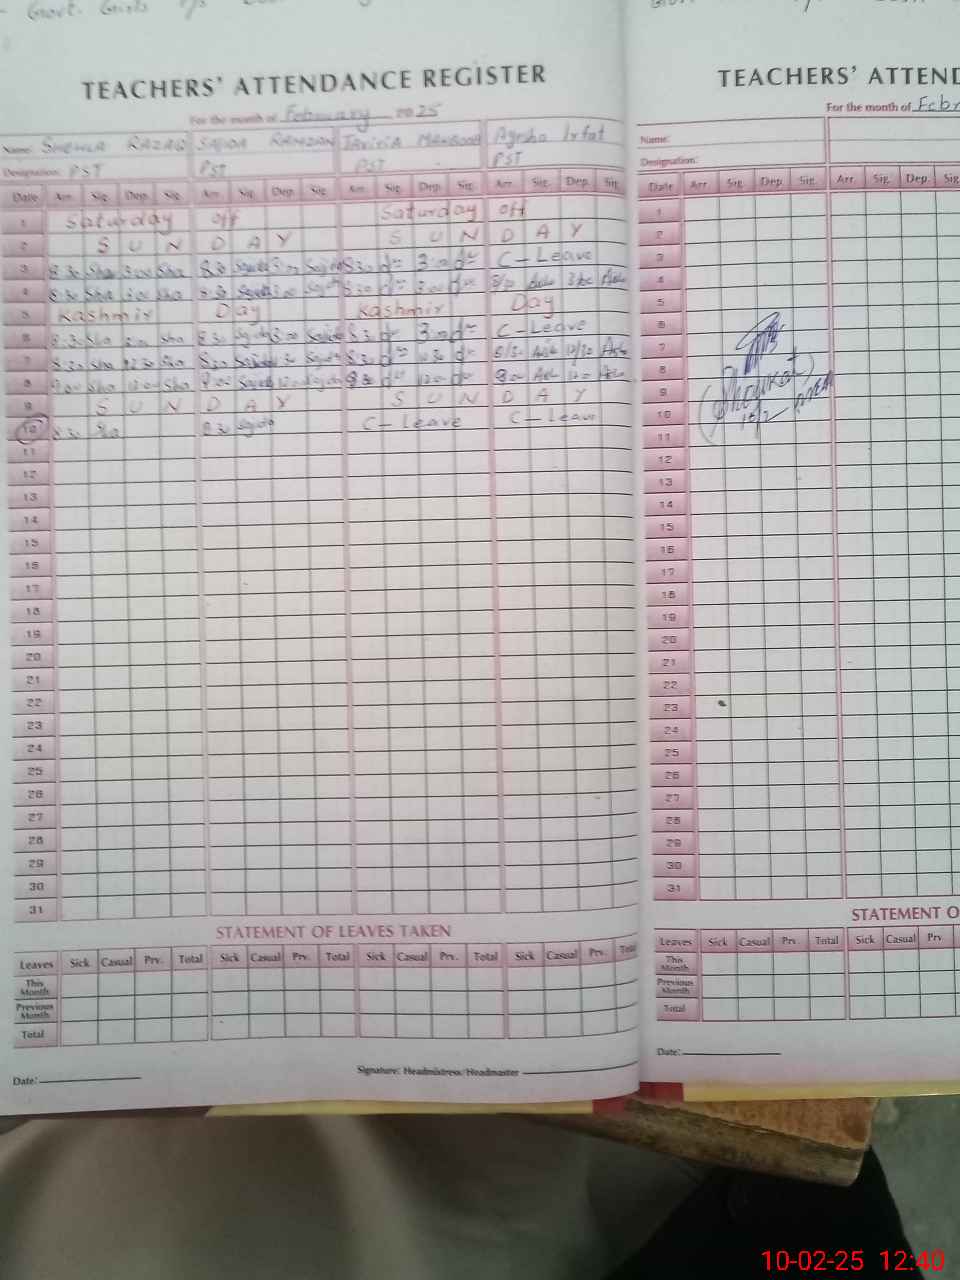 Govt. Girls P/S
TEACHERS' ATTENDANCE REGISTER
For the month of February 2025
Name: SHEHLA RAZAQ SAJDA RAMZAN Ayesha Irfat
Designation: PST PST PST PST
Date Arr. Sig. Dep. Sig. Arr. Sig. Dep. Sig. Arr. Sig. Dep. Sig. Arr. Sig. Dep. Sig.
1 Saturday off Saturday off
2 S U N D A Y S U N D A Y
3 8:30 Sha 3:00 Sha 8:30 Sajida 3:00 Sajida 8:30 3:00 C-Leave
4 8:30 Sha 3:00 Sha 8:30 Sajida 3:00 Sajida 8:30 3:00
5 Kashmir Day Kashmir Day
6 8:30 Sha 3:00 Sha 8:30 Sajida 3:00 Sajida 8:30 3:00 C-Leave
7 8:30 Sha 12:30 Sha 8:30 Sajida Sajida 8:30 12:30
8 9:00 Sha 12:00 Sha 9:00 Sajida 12:00 Sajida 12:00 9:00 12:00
9 S U N D A Y S U N D A Y
10 8:30 Sha 8:30 Sajida C-Leave C-Leave
11
12
13
14
15
16
17
18
19
20
21
22
23
24
25
26
27
28
29
30
31
STATEMENT OF LEAVES TAKEN
Leaves Sick Casual Prv. Total Sick Casual Prv. Total Sick Casual Prv. Total Sick Casual Prv. Total
This Month
Previous Month
Total
Date: Signature: Headmistress/Headmaster
TEACHERS' ATTEND
For the month of Febr
Name:
Designation:
Date Arr. Sig. Dep. Sig. Arr. Sig. Dep. Sig
1
2
3
4
5
6
7
8
9
10
11
12
13
14
15
16
17
18
19
20
21
22
23
24
25
26
27
28
29
30
31
(Shoukat)
10/2
STATEMENT O
Leaves Sick Casual Prv. Total Sick Casual Prv
This Month
Previous Month
Total
Date:
10-02-25 12:40